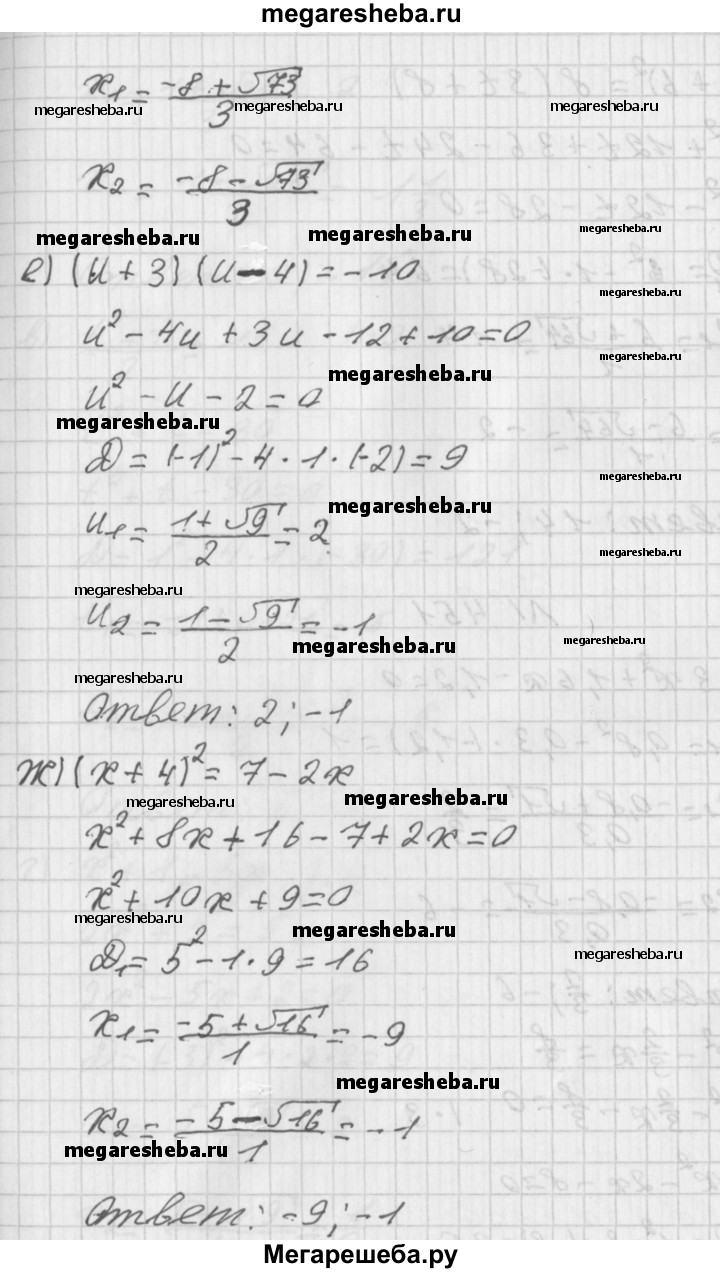 megaresheba.ru
x₁ = (-8 + √73)/3
megaresheba.ru megaresheba.ru megaresheba.ru
x₂ = (-8 - √73)/3
megaresheba.ru megaresheba.ru megaresheba.ru
е) (u + 3) (u - 4) = -10
megaresheba.ru
u² - 4u + 3u - 12 + 10 = 0
megaresheba.ru
megaresheba.ru
u² - u - 2 = 0
megaresheba.ru
D = (-1)² - 4 · 1 · (-2) = 9
megaresheba.ru
megaresheba.ru
u₁ = (1 + √9)/2 = 2
megaresheba.ru
megaresheba.ru
u₂ = (1 - √9)/2 = -1
megaresheba.ru megaresheba.ru
megaresheba.ru
Ответ: 2; -1
ж) (x + 4)² = 7 - 2x
megaresheba.ru megaresheba.ru
x² + 8x + 16 - 7 + 2x = 0
x² + 10x + 9 = 0
megaresheba.ru megaresheba.ru
D₁ = 5² - 1 · 9 = 16
megaresheba.ru
x₁ = (-5 + √16)/1 = -9
megaresheba.ru
x₂ = (-5 - √16)/1 = -1
megaresheba.ru
Ответ: -9; -1
Мегарешеба.ру